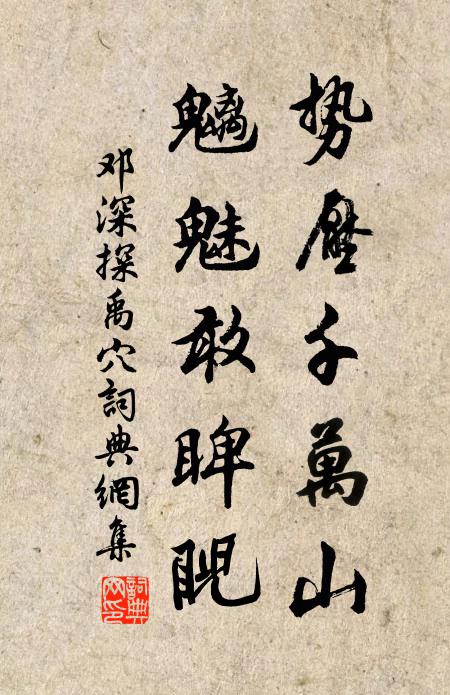 势壓千萬山
魑魅敢睥睨
邓深探禹穴詞典網集